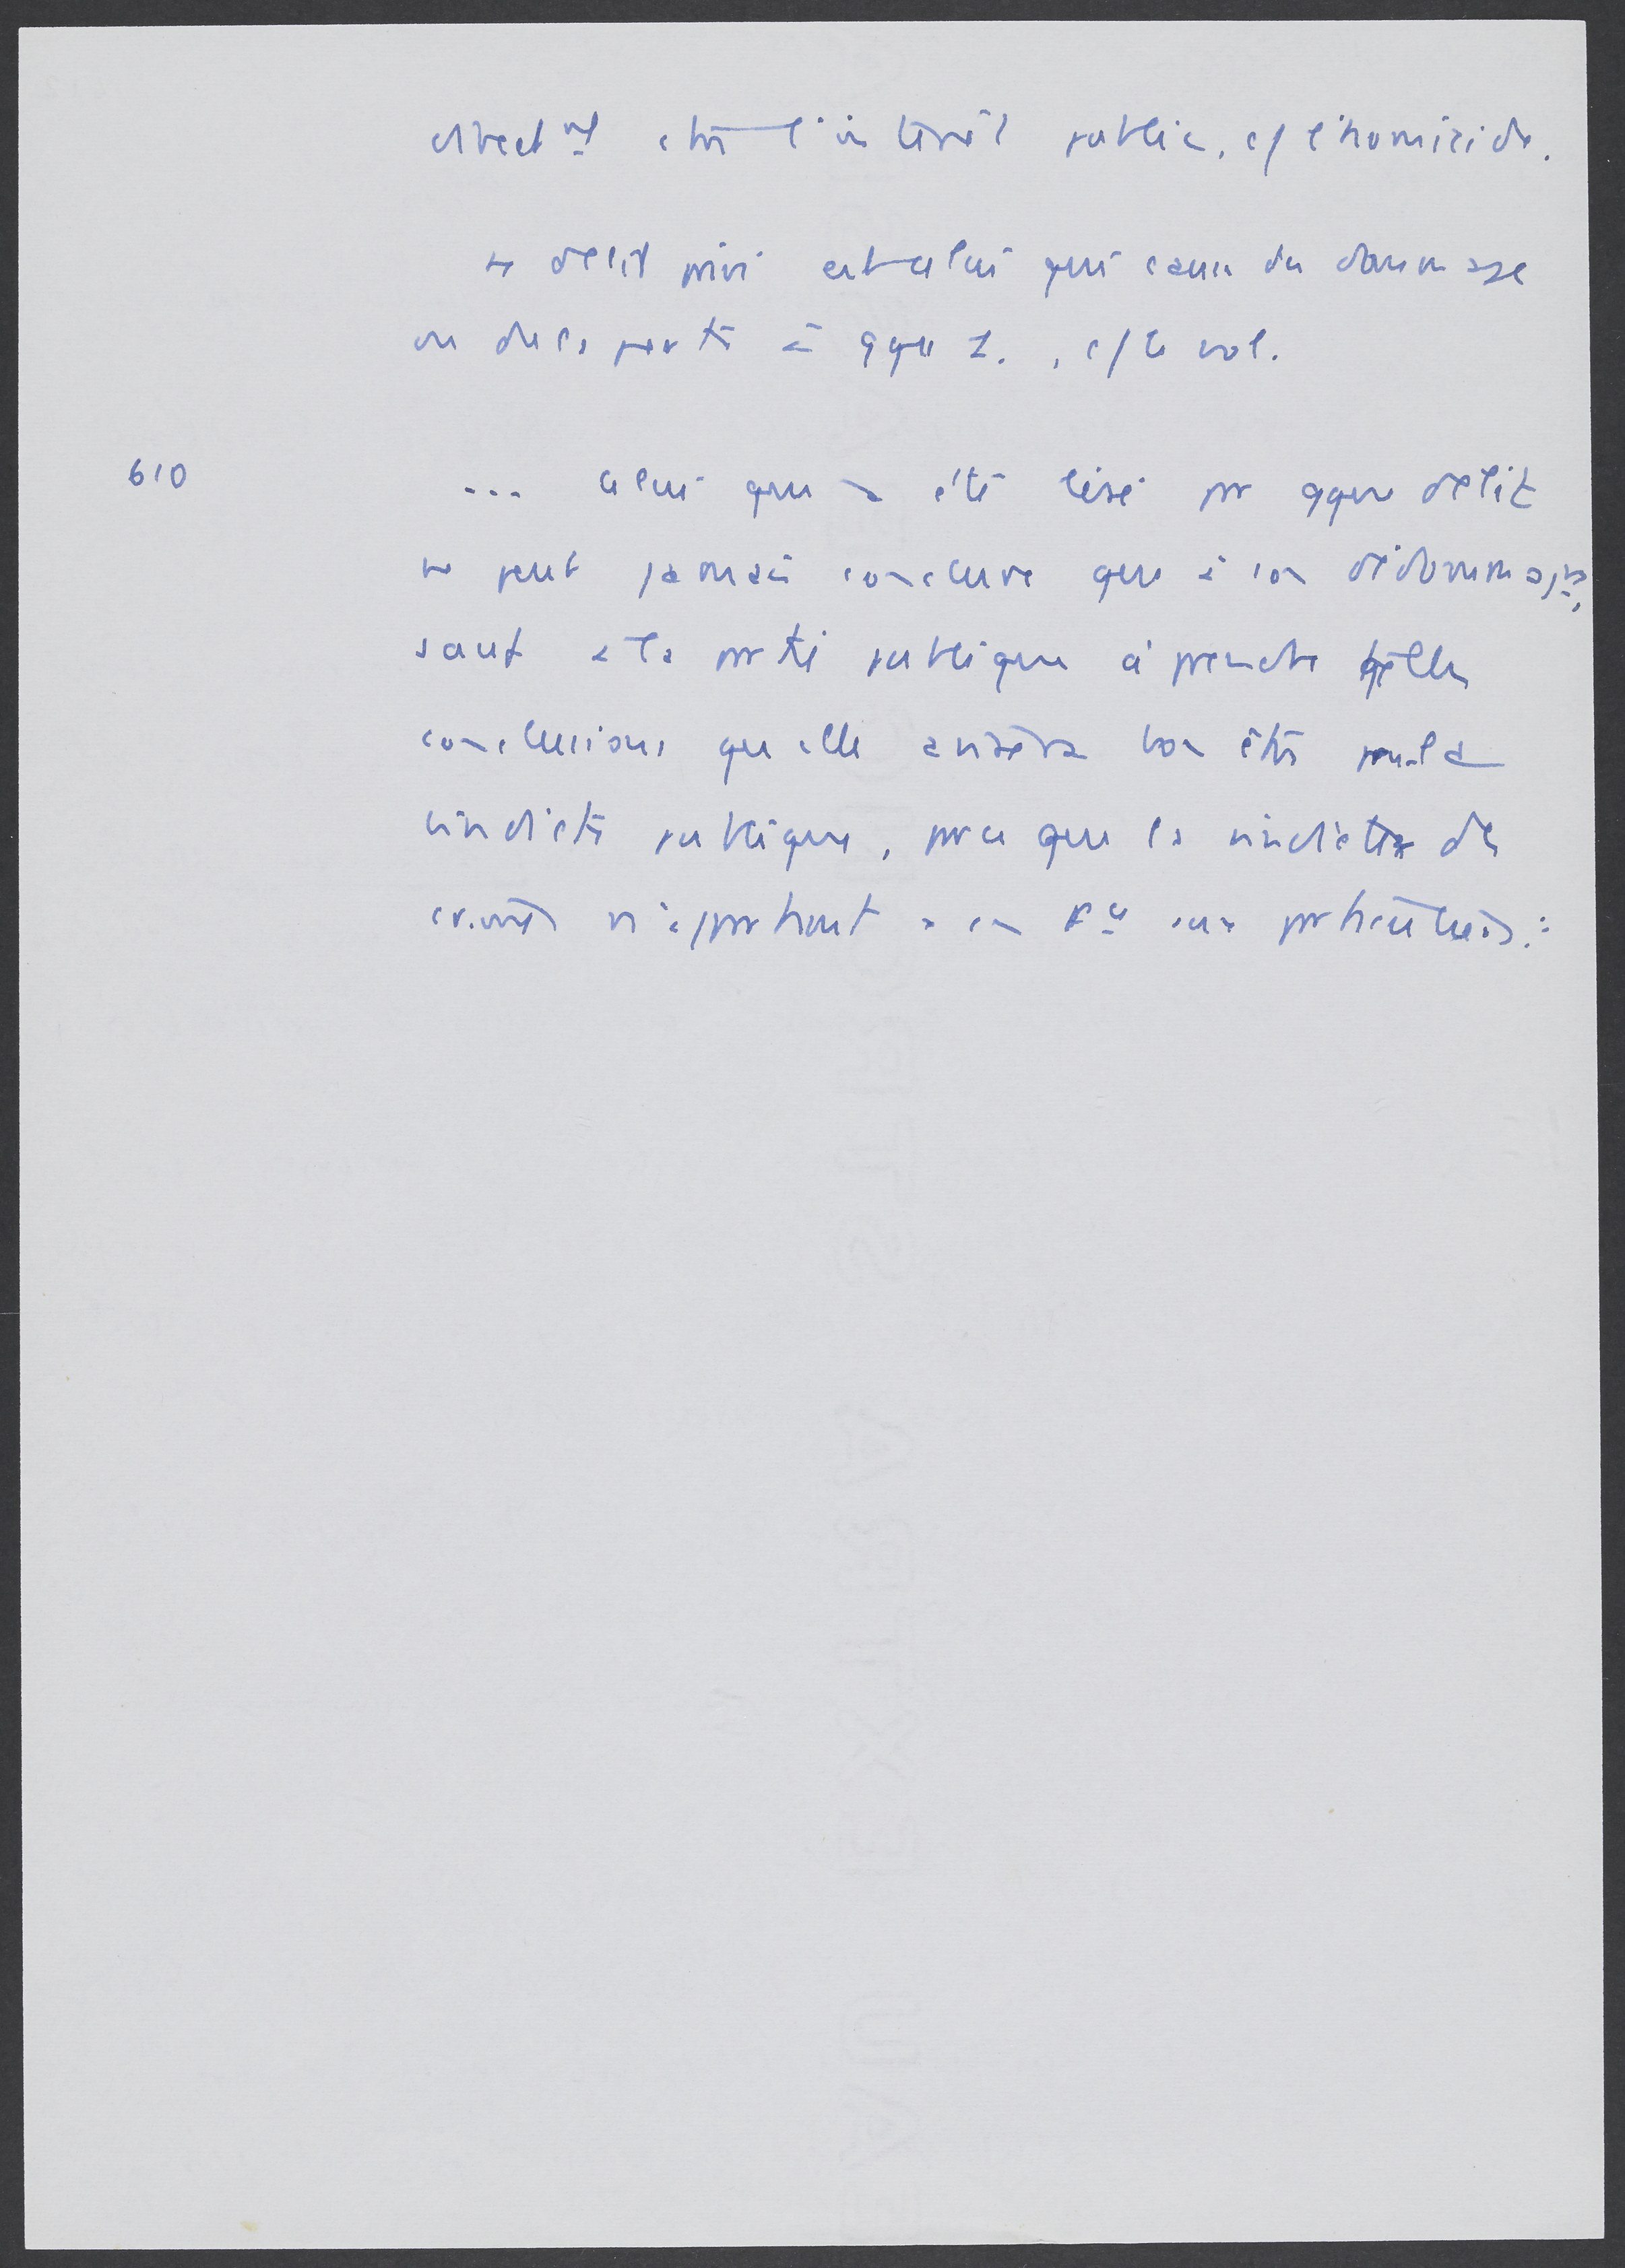 direct mt contre l'intérêt public, c/ l'homicide.
Le délit privé est celui qui cause du dommage
ou de la perte à qque 1. , c/ le vol.
610
... celui qui a été lésé par qque délit
ne peut jamais conclure que à son dédommagt,
sauf à la partie publique à prendre telles
conclusions qu'elle avisera bon être pour la
vindicte publique, parce que la vindicte des
crimes n'appartient en Fce aux particuliers.